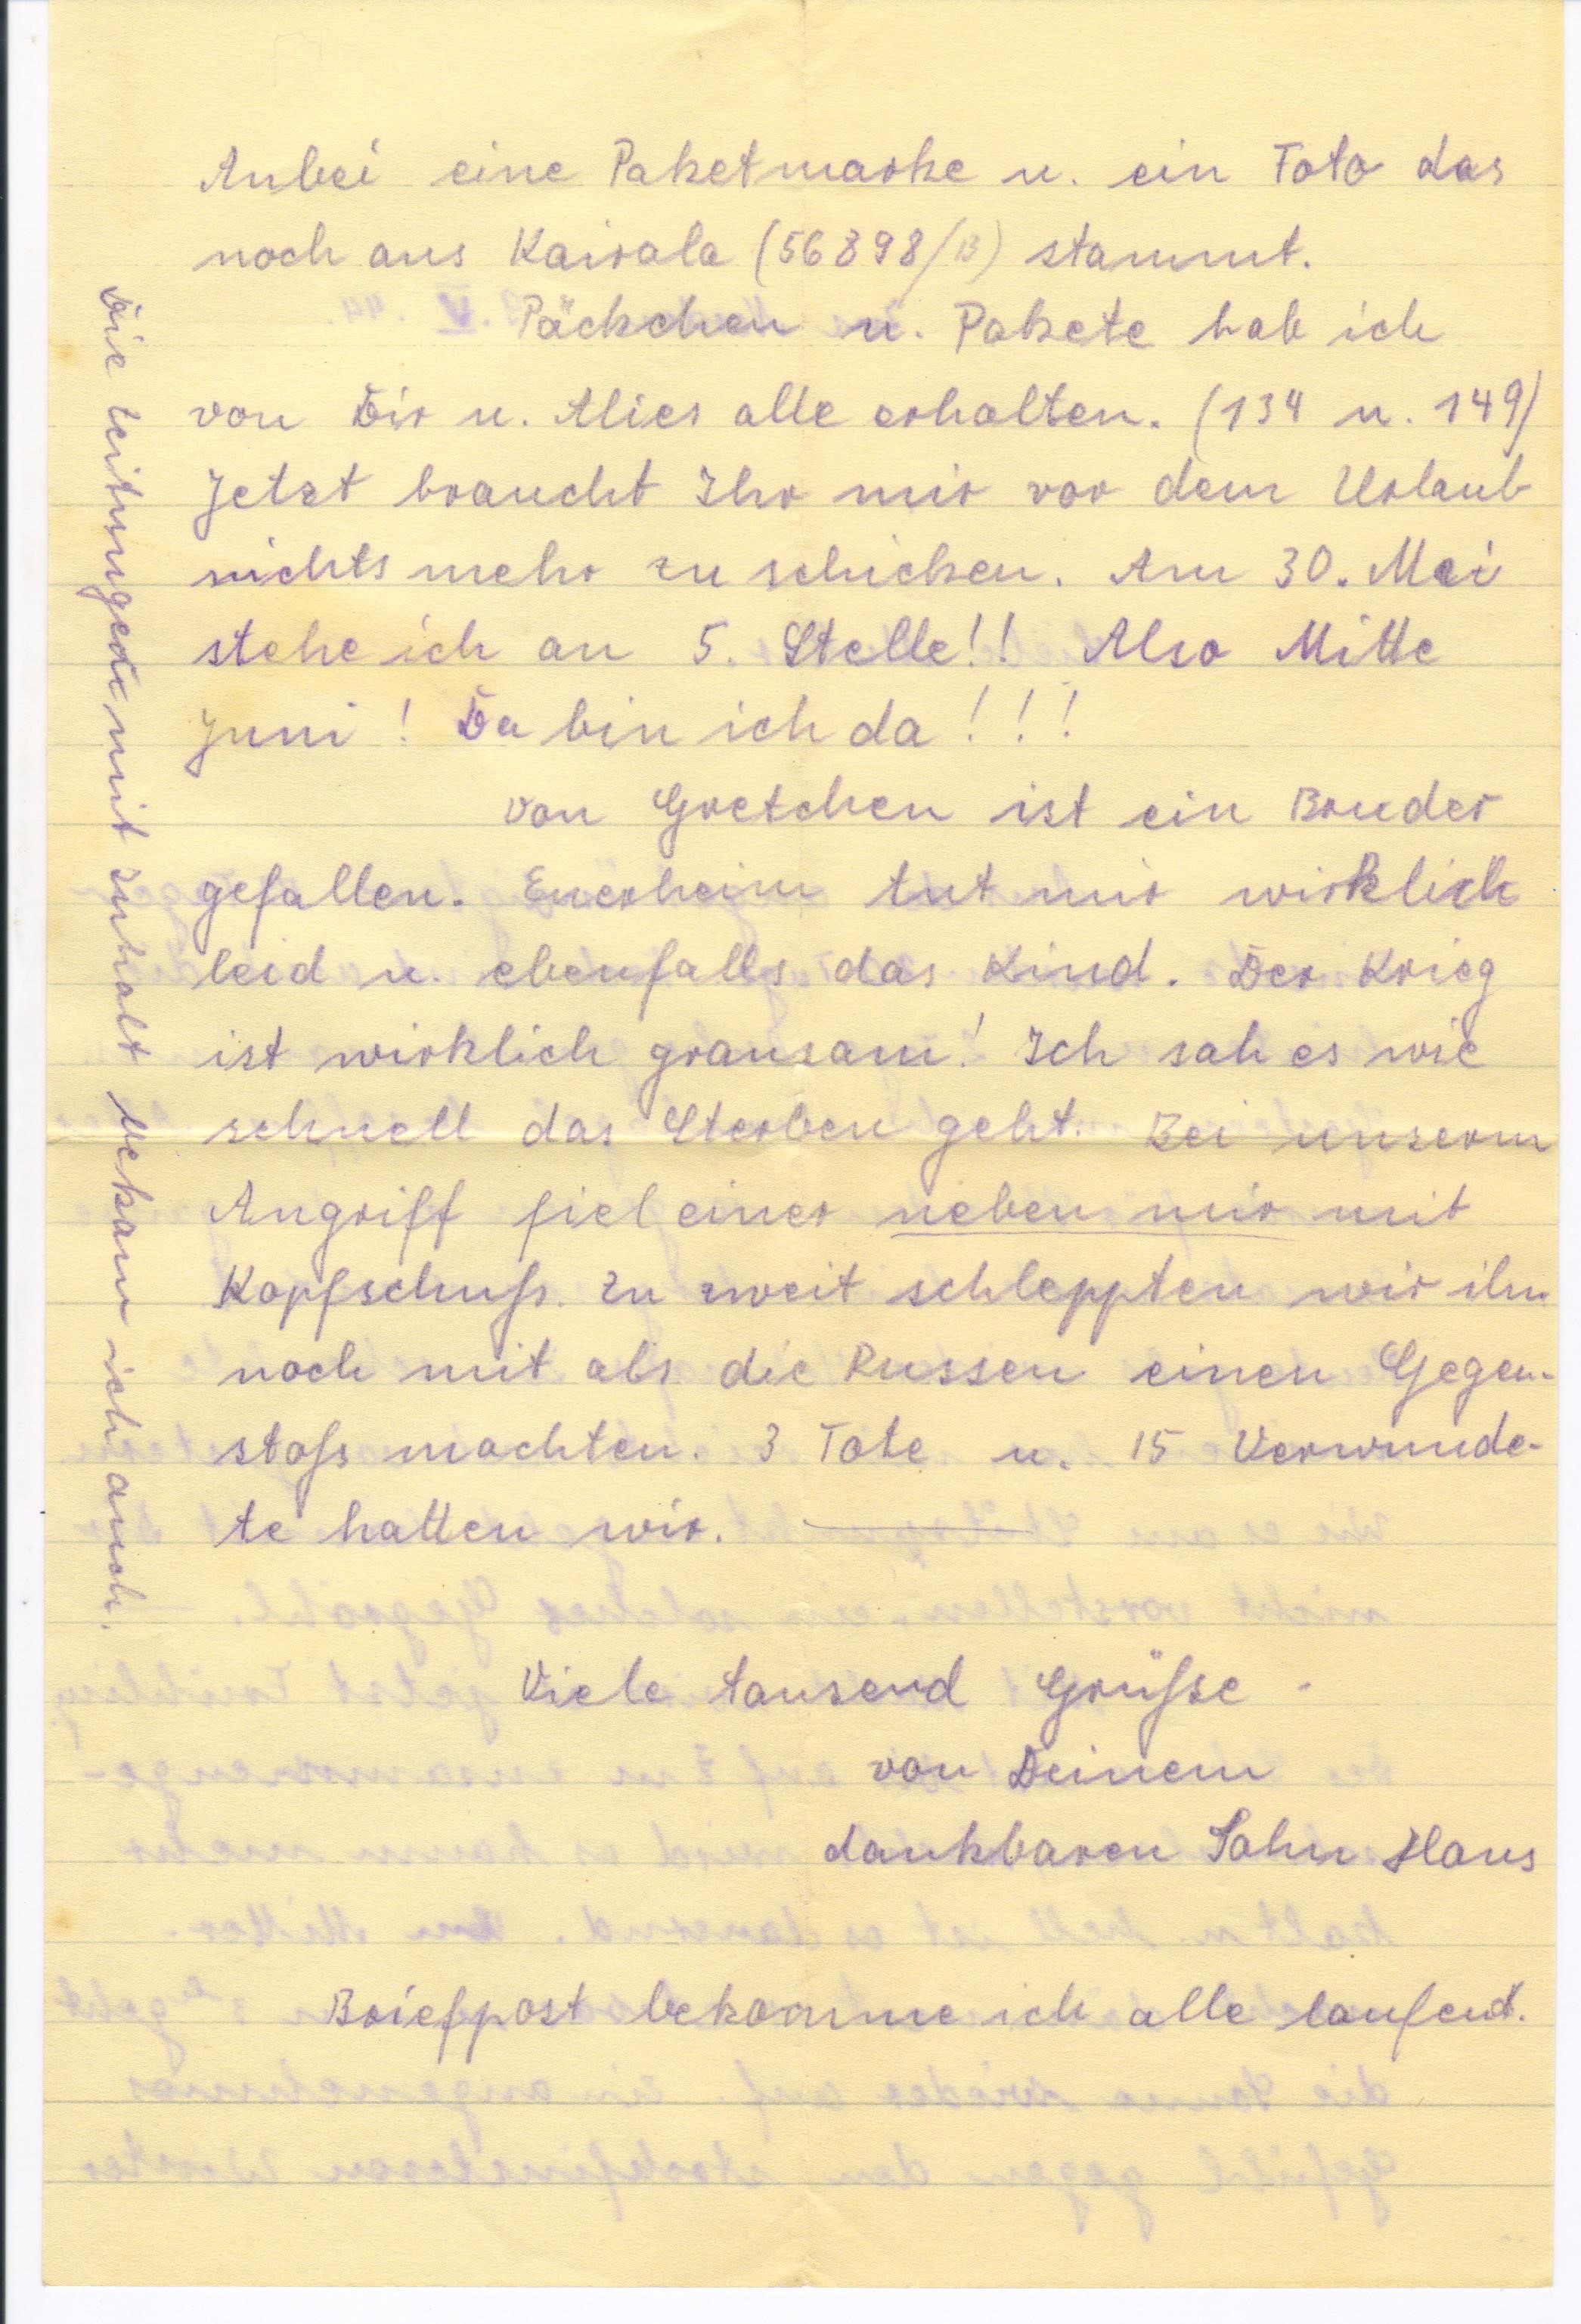 Anbei eine Paketmarke u. ein Foto das
noch aus Kairala (56898/B) stammt.
Päckchen u. Pakete hab ich
von Dir u. Mies alle erhalten. (134 u. 149)
Jetzt braucht Ihr mir vor dem Urlaub
nichts mehr zu schicken. Am 30. Mai
stehe ich an 5. Stelle!! Also Mitte
Juni! Da bin ich da!!!
Von Gretchen ist ein Bruder
gefallen. Euerheim tut mir wirklich
leid u. ebenfalls das Kind. Der Krieg
ist wirklich grausam! Ich sah es wie
schnell das Sterben geht. Bei unserm
Angriff fiel einer neben mir mit
Kopfschuß. Zu zweit schleppten wir ihn
noch mit als die Russen einen Gegen-
stoß machten. 3 Tote u. 15 Verwunde-
te hatten wir.
Viele tausend Grüße
von Deinem
dankbaren Sohn Hans
Briefpost bekomme ich alle laufend.
Die Zeitungen mit Inhalt bekam ich auch.